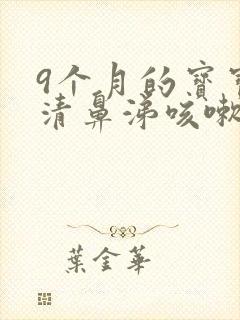 9个月的寳寳
清鼻涕咳嗽
葉金華